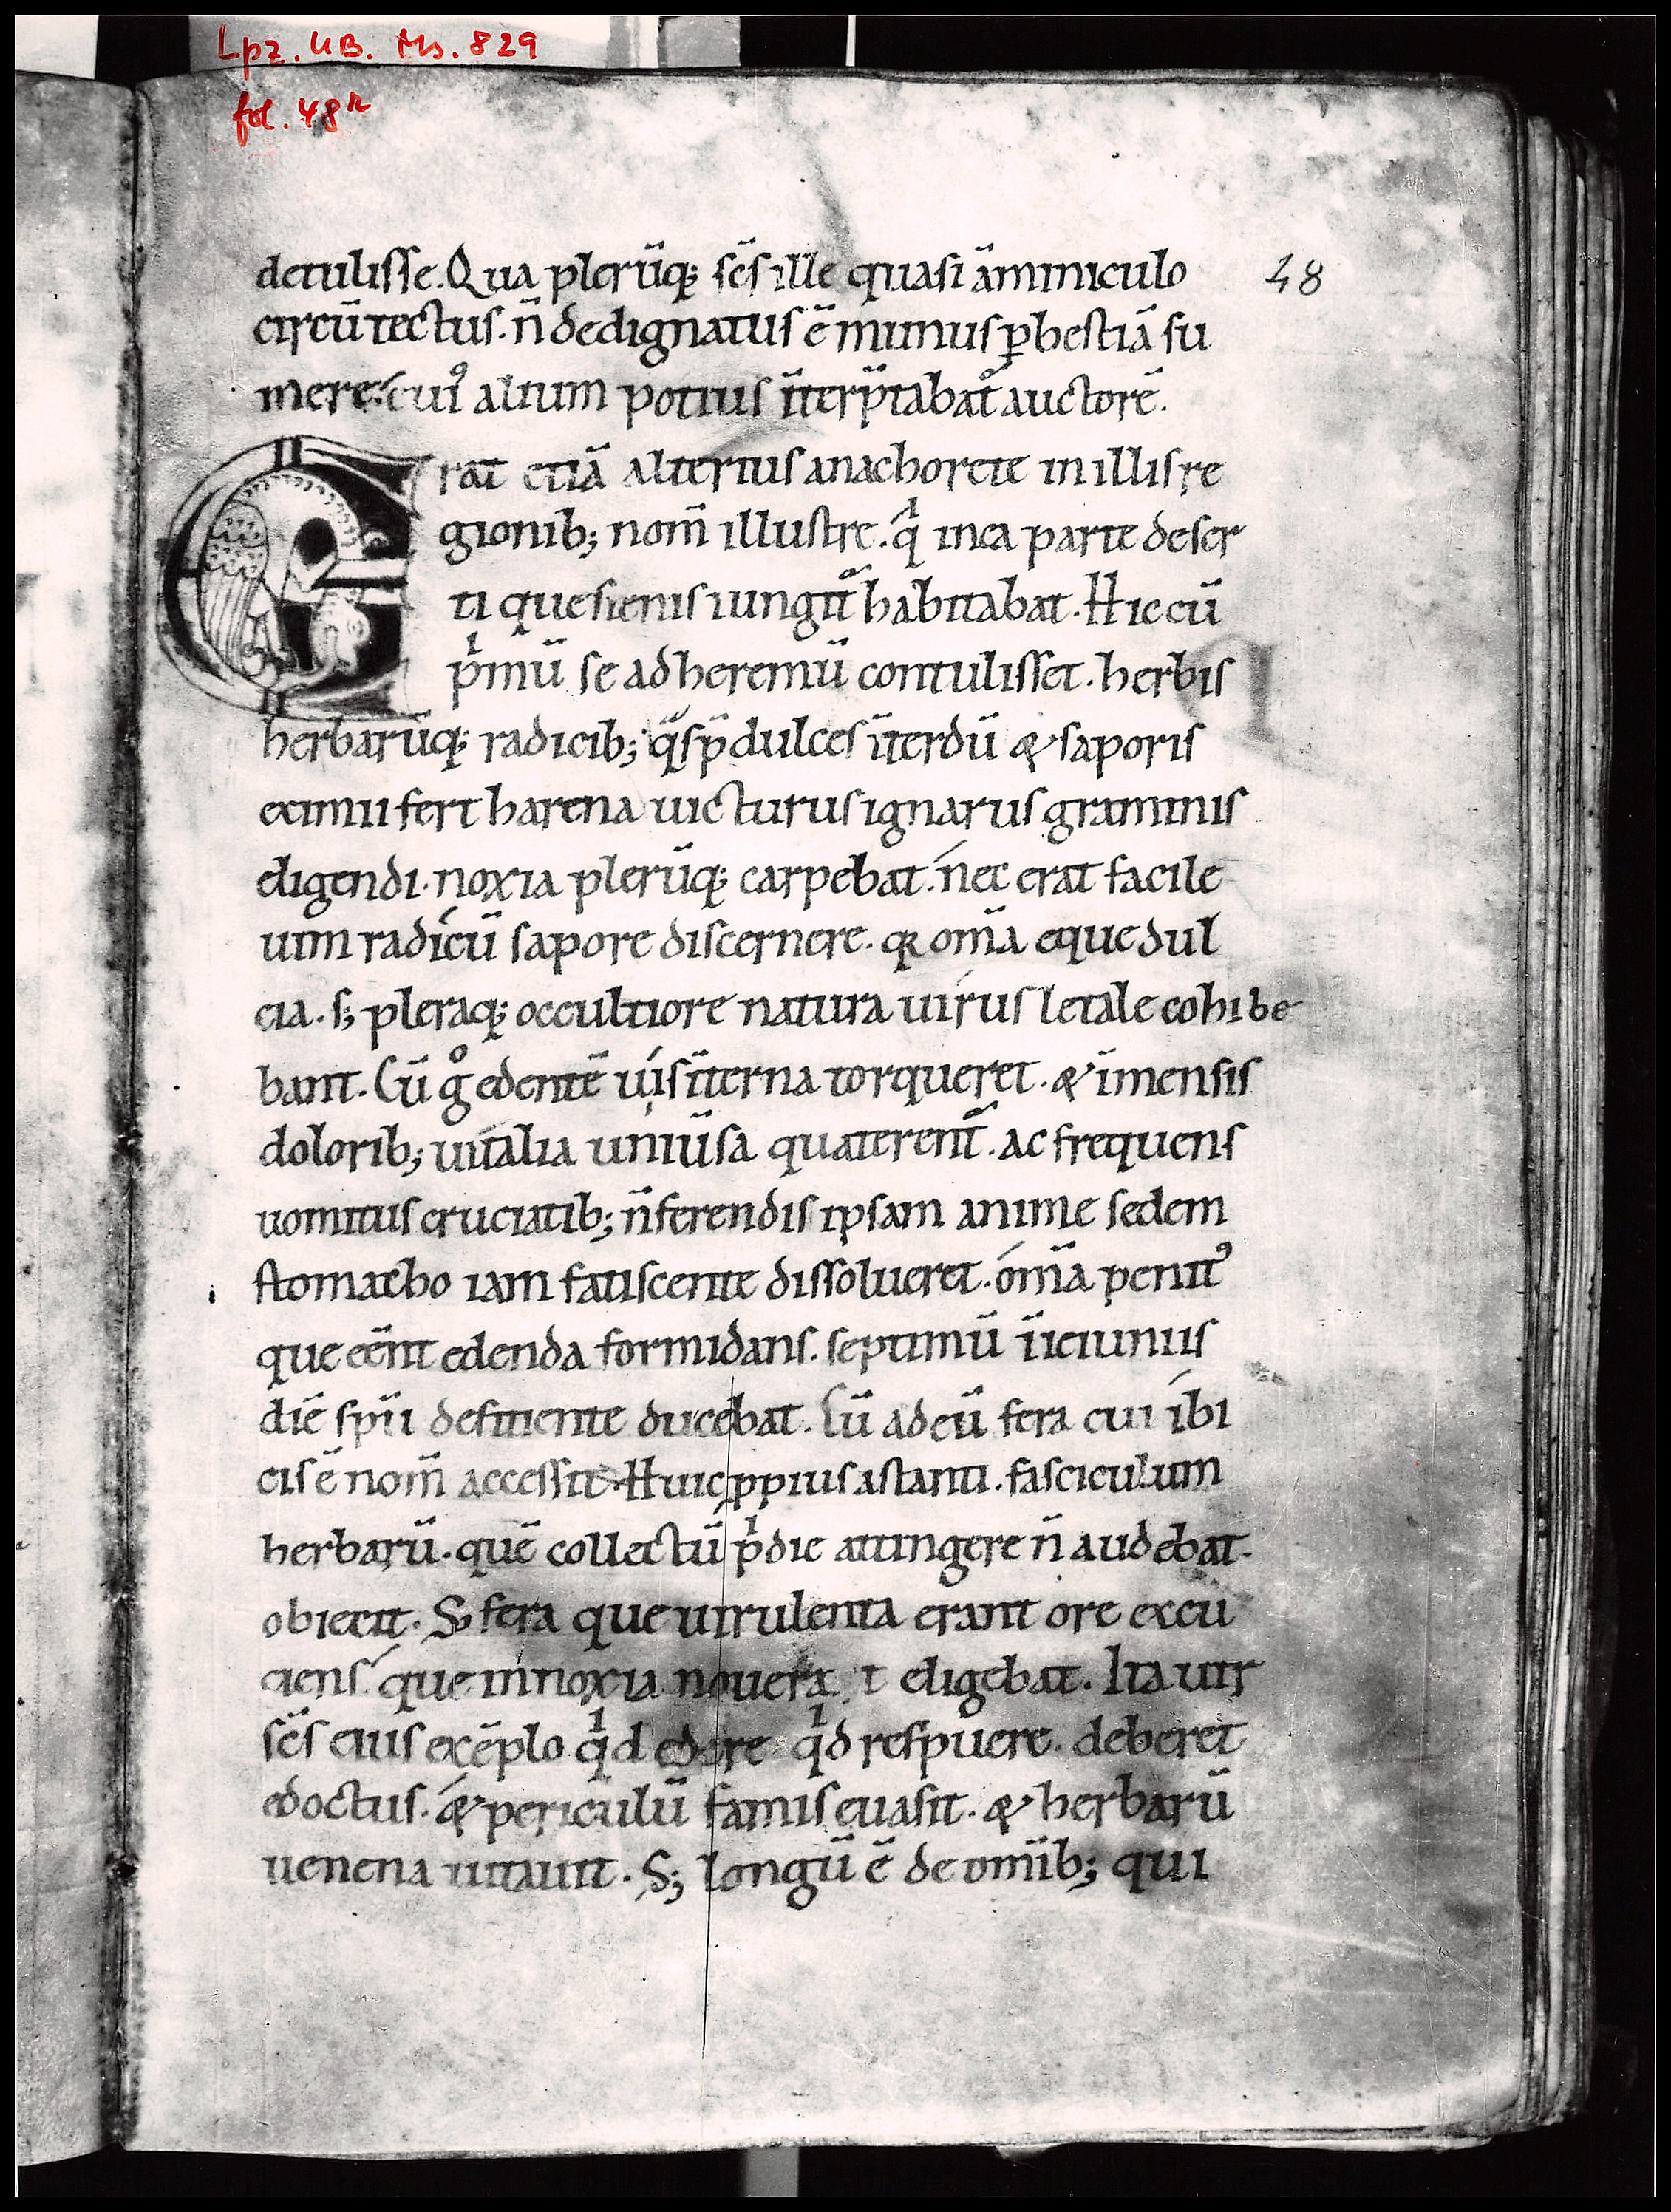 Lpz. UB. Ms. 829
fol. 48r
detulisse. Qua plerūq; sc̄s ille quasi ām̄iniculo 48
circū tectus. n̄ dedignatus ē munus p̱ bestiā su
mere. cuiꝰ alium potius īterp̄tabat᷑ auctorē.
Erat etiā alterius anachorete in illis re
gionib; nom̄ illustre. qͥ in ea parte deser
ti que sienis iungit᷑ habitabat. Hic cū
pͥmū se ad heremū contulisset. herbis
herbarūq; radicib; qͣs p̄dulces īterdū & saporis
eximii fert harena uicturus ignarus graminis
eligendi. noxia plerūq; carpebat. nec erat facile
uim radicū sapore discernere. qꝛ om̄a eque dul
cia. s; pleraq; occultiore natura uirus letale cohibe
bant. Cū gͦ edentē uis īterna torqueret. & īmensis
dolorib; uitalia uniūsa quaterent᷑. ac frequens
uomitus cruciatib; n̄ ferendis ipsam anime sedem
stomacho iam fatiscente dissolueret. om̄a penitꝰ
que eēnt edenda formidans. septimū ī ieiuniis
diē spū̄i deficiente ducebat. Cū ad eū fera cui ibi
cis ē nom̄ accessit. Huic ꝓpius astanti. fasciculum
herbarū. quē collectū pͥdie attingere n̄ audebat.
obiecit. S; fera que uirulenta erant ore excu
ciens. que innoxia nouerat eligebat. Ita uir
sc̄s eius exēplo qͥd edere qͥd respuere. deberet
edoctus. & periculū famis euasit. & herbarū
uenena uitauit. S; longū ē de om̄ib; qui